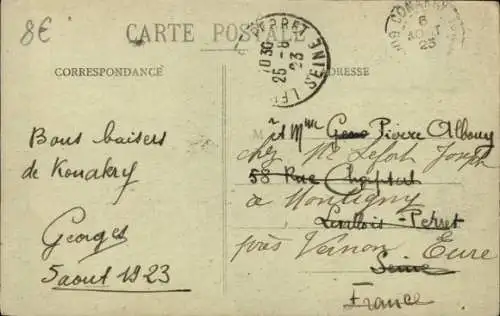 8€
CARTE POSTALE
CORRESPONDANCE
ADRESSE
LEV PERRET
10 30
25-8
23
SEINE
CONAKRY
6
AOUT
23
Bons baisers
de Konakry
Georges
5 aout 1923
M
et Mme Pierre Albouy
chez Mr Lefort Joseph
58 Rue Chaptal
à Montigny
Levallois-Perret
près Vernon Eure
Seine
France